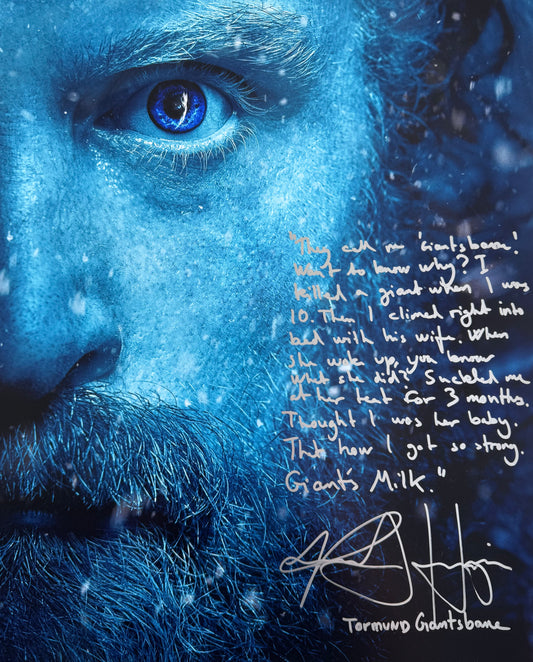 "They call me 'Giantsbane'.
Want to know why? I
killed a giant when I was
10. Then I climed right into
bed with his wife. When
she woke up, you know
what she did? Suckled me
at her teat for 3 months.
Thought I was her baby.
That how I got so strong.
Giant's Milk."
Tormund Giantsbane